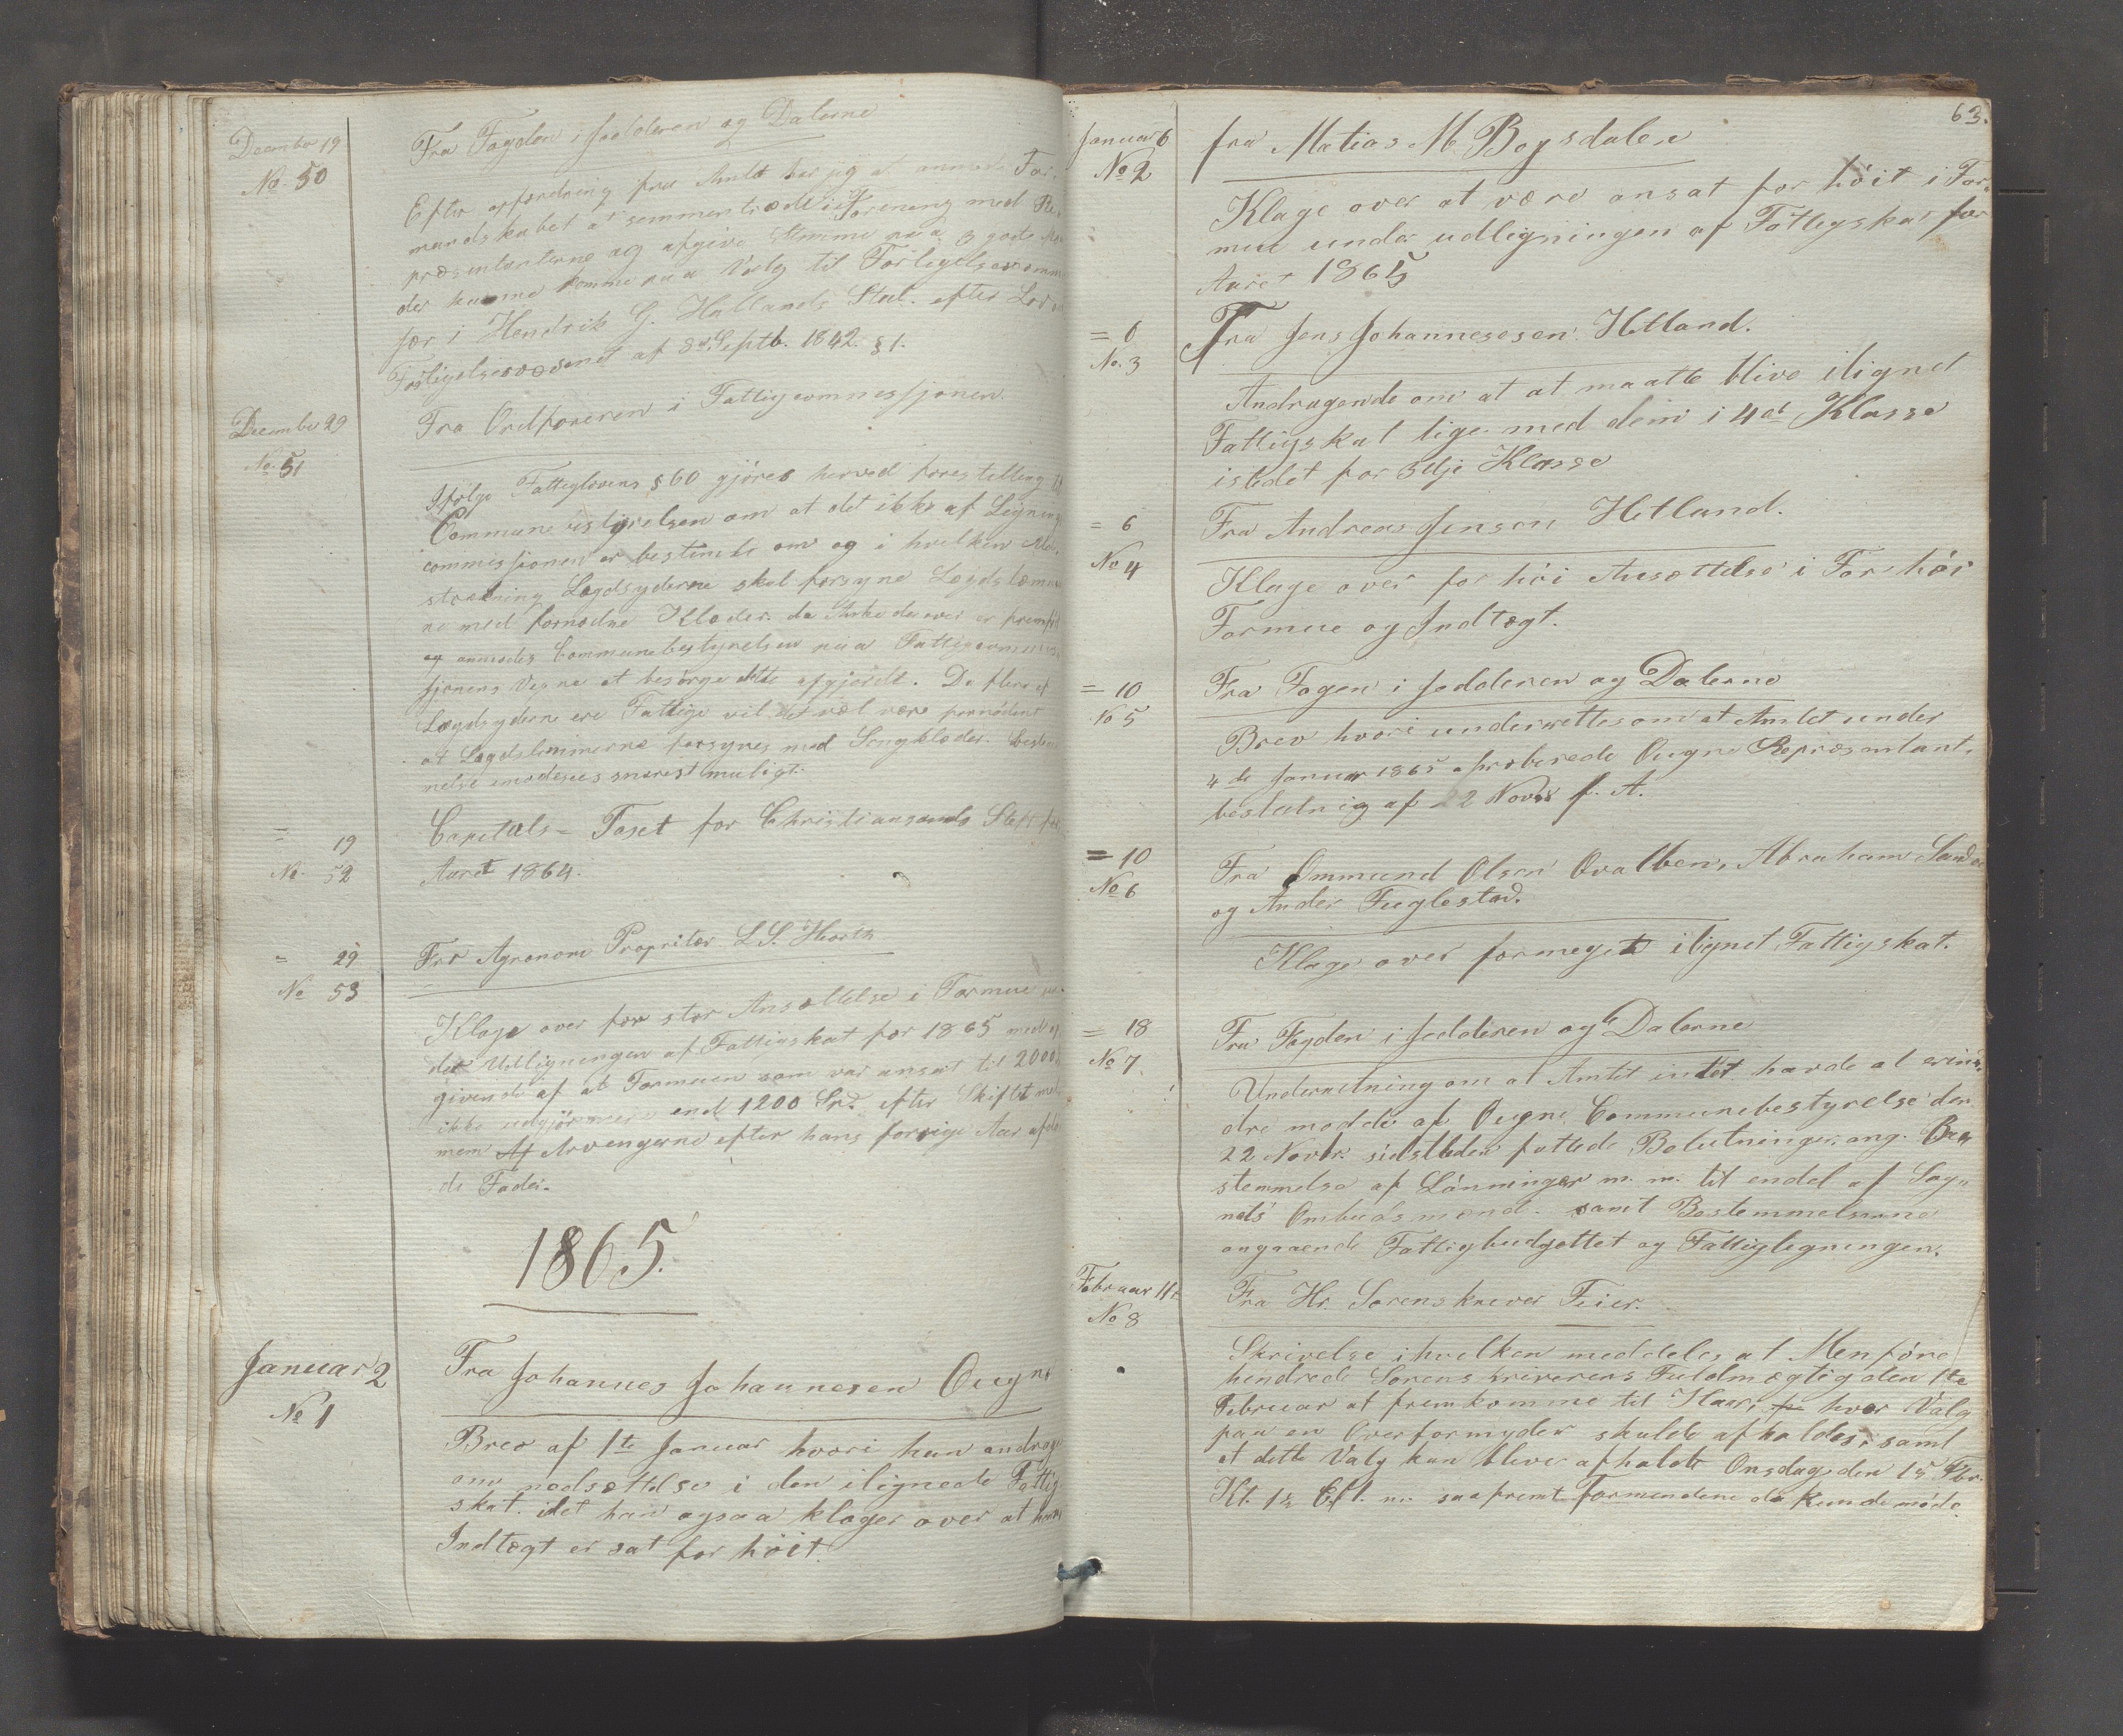 December 19
No. 50
Fra Fogden i Jedderen og Dalerne
Efter opfordring fra Amtet har jeg at anmode For-
mandskabet at sammentræde i Forening med Re-
præsentanterne og afgive Stemme paa 3
der kunne komme paa Valg til Forligelsescomm
før i Hendrik G. Hallands Sted. efter Lov om
Forligelsesvæsenet af 3d. Septb. 1842. §1.
December 29
No. 51
Fra Ordføreren i Fattigcommessjonen.
Ifølge Fattiglovens §60 gjøres herved forestilling til
Communebestyrelsen om at det ikke af Ligning
commissionen er bestemt om og i hvilken
strækning Lægdsyderne skal forsyne Lægdslemme
ne med fornødne Klæder. da Anke derover er fremført
og anmodes Communebestyrelsen paa Fattigcommis
sjonens Vegne at besørge dette afgjordt. Da flere af
Lægdsyderne ere Fattige vil det vel være fornødent
at Lægdslemmerne forsynes med Sengklæder. Bestem
melse imødesees snarest muligt.
= 19
No. 52
Capitals-Taxt for Christiansands Stift for
Aaret 1864.
= 29
No 53
Fra Agronom Propritær L. S. Hiorth
Klage over for stor Ansættelse i Formue un-
der Udligningen af Fattigskat for 1865 med op
givende af at Formuen som var ansat til 2000
ikke udgjør mere end 1200 Spd. efter Skiftet mel
mem Af Arvengerne efter hans forrige Aar afdø
de Fader.
1865.
Januar 2
No 1
Fra Johannes Johannesen Ougne
Brev af 1te Januar hvori han andrage
om nedsættelse i den ilignede Fattig
skat. idet han ogsaa klager over at hans
Indtægt er sat for höit.
63.
Januar 6
No 2
fra Matias M Bøgsdalen
Klage over at være ansat for höit i For-
mue under udligningen af Fattigskat for
Aaret 1865
= 6
No. 3
Fra Jens Johannesesen Hetland.
Andragende om at at maatte blive ilignet
Fattigskat lige med dem i 4de Klasse
istedet for 3dje Klasse
= 6
No 4
Fra Andreas Jensen Hetland.
Klage over for höi Ansættelse i Forhør
Formue og Indtægt.
= 10
No 5
Fra Fogen i Jedderen og Dalerne
Brev hvori underrettes om at Amtet under
4de Januar 1865 aprobrerede Ougne Repræsentant-
beslutnig af 22 Novbr f. A.
= 10
No 6
Fra Ommund Olsen Qvalben, Abraham Sand
og Ander Fuglestad.
Klage over formeget ilignet Fattigskat.
= 18
No 7
Fra Fogden i Jedderen og Dalerne
Underretning om at Amtet intet havde at erin-
dre mod de af Ougne Communebestyrelse den
22 Novbr. sidstleden fattede Beslutninger, ang. Be-
stemmelse af Lønninger m. m. til endel af Sog-
nets Ombudsmænd. samt Bestemmelserne
angaaende Fattigbudgettet og Fattigligningen.
Februar 11te
No 8
Fra Hr. Sorenskrever Feier.
Skrivelse i hvilken meddeles at Menføre
hindrede Sorenskriverens Fuldmægtig den 1te
Februar at fremkomme til Haar, hvor Valg
paa en Overformynder skulde afholdes, samt
at dette Valg kan blive afholdt Onsdag den 15 Fbr.
Kl. 1½ Eft. m. saafremt Formendene da kunde møde.